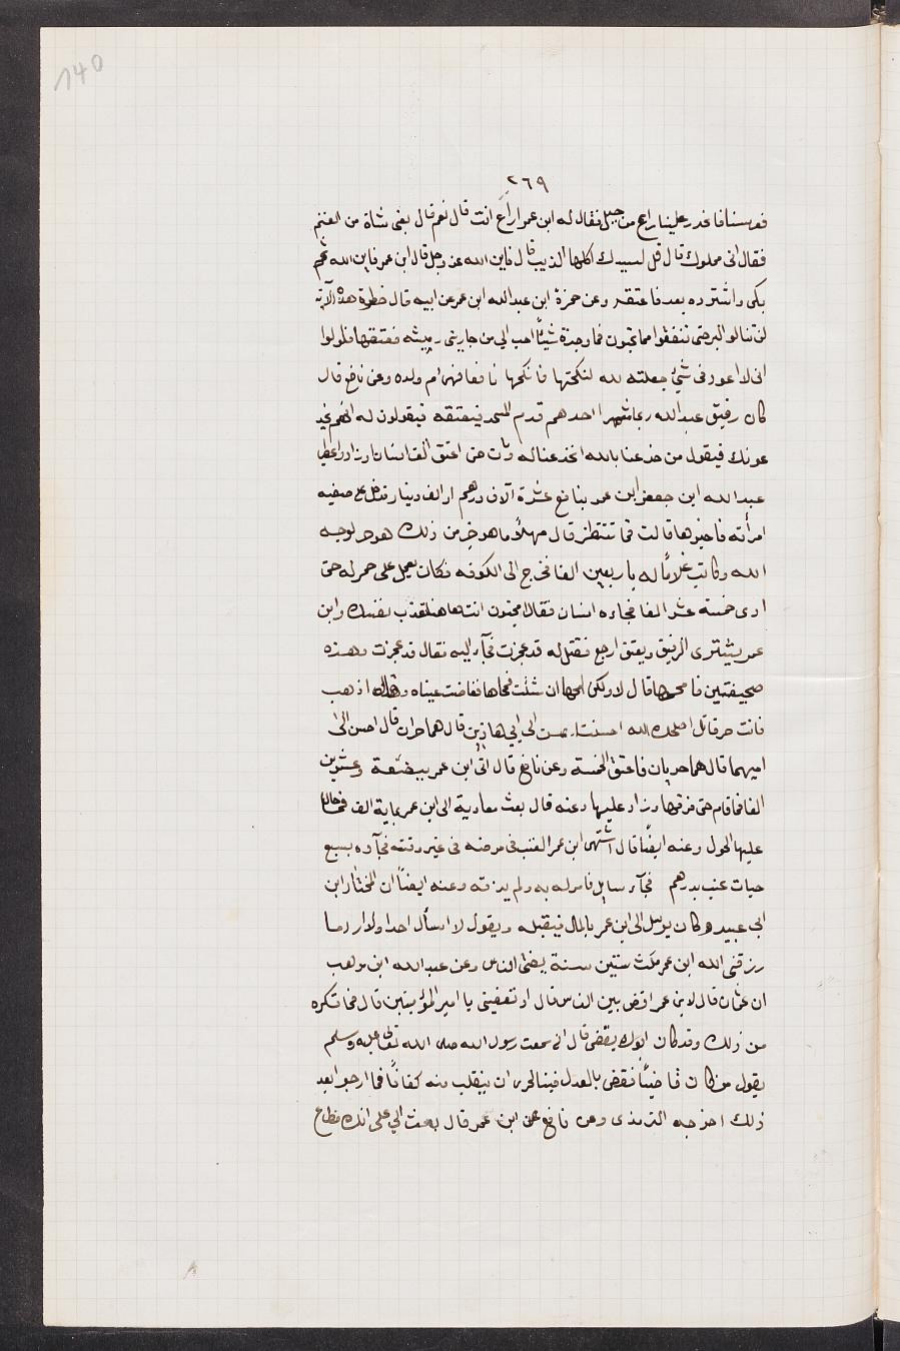 140
٢٦٩
فعرسنا فانحدر علينا راع من جبل فقال له ابن عمر اراع انت قال نعم قال بعنى شاة من الغنم
فقال انى مملوك قال قل لسيدك اكلها الذيب قال فاين الله عز وجل قال ابن عمر فاين الله ثم
بكى واشتره بعد فاعتقه وعن حمزة ابن عبدالله ابن عمر عن ابيه قال خطرة هذه الآية
لن تنالو البر حتى تنفقوا مما تحبون فما وجدة شيئًا احب الي من جاريتى رميثه فعتقتها فلولوا
انى لا اعود فى شئ جعلته لله لنكحتها فانكحها نافعا فهى ام ولده وعن نافع قال
كان رفيق عبدالله ربما شهرا احدهم قدم المسجد فيعتقه فيقولون له انهم يخد
عونك فيقول من خدعنا بالله انخدعنا له ومات حتى اعتق الف انسان او زاد واعطى
عبدالله ابن جعفر ابن عمر بنافع عشرة آلاف درهم او الف دينار فدخل على صفيه
امرأته فاخبرها قالت فما تنتظر قال مهلًا ما هو خير من ذلك هو حر لوجه
الله وكاتب غلامًا له باربعين الفا فخرج الى الكوفه فكان يعمل على حمر له حتى
ادى خمسة عشر الفا فجاءه انسان فقال امجنون انت هاهنا تعذب نفسك وابن
عمر يشترى الرقيق ويعتق ارجع فقل له قد عجزت فجآء اليه فقال قد عجزت وهذه
صحيفتين فامحوها قال لا ولكن امحها ان شئت فمحاها ففاضت عيناه وقال اذهب
فانت حر قال اصلحك الله احسنت احسن الى ابني هاذين قال هما حران قال احسن الى
اميهما قال هما حريان فاعتق الخمسة وعن نافع قال اتى ابن عمر ببضعة وعشرين
الفا فما قام حتى فرقها وزاد عليها وعنه قال بعث معاوية الى ابن عمر بماية الف فما حال
عليها الحول وعنه ايضًا قال اشتهى ابن عمر العنب فى مرضه فى غير وقته فجآءه بسبع
حبات عنب بدرهم فجآء سايل فامر له به ولم يذقه وعنه ايضًا ان المختار ابن
ابى عبيده كان يرسل الى ابن عمر بالمال فيقبله ويقول لا اسأل احدا ولا ارد ما
رزقنى الله ابن عمر مكث ستين سنة يفتى الناس وعن عبدالله ابن موهب
ان عثمان قال لابن عمر اقض بين الناس قال او تعفينى يا امير المؤمنين قال فما تكره
من ذلك وقد كان ابوك يقضى قال انى سمعت رسول الله صلى الله تعالى عليه وسلم
يقول من كان قاضيًا فقضى بالعدل فبالحرى ان ينقلب منه كفافًا فما ارجو ابعد
ذلك اخرجه الترمذى وعن نافع عن ابن عمر قال بعث الي على انك مطاع